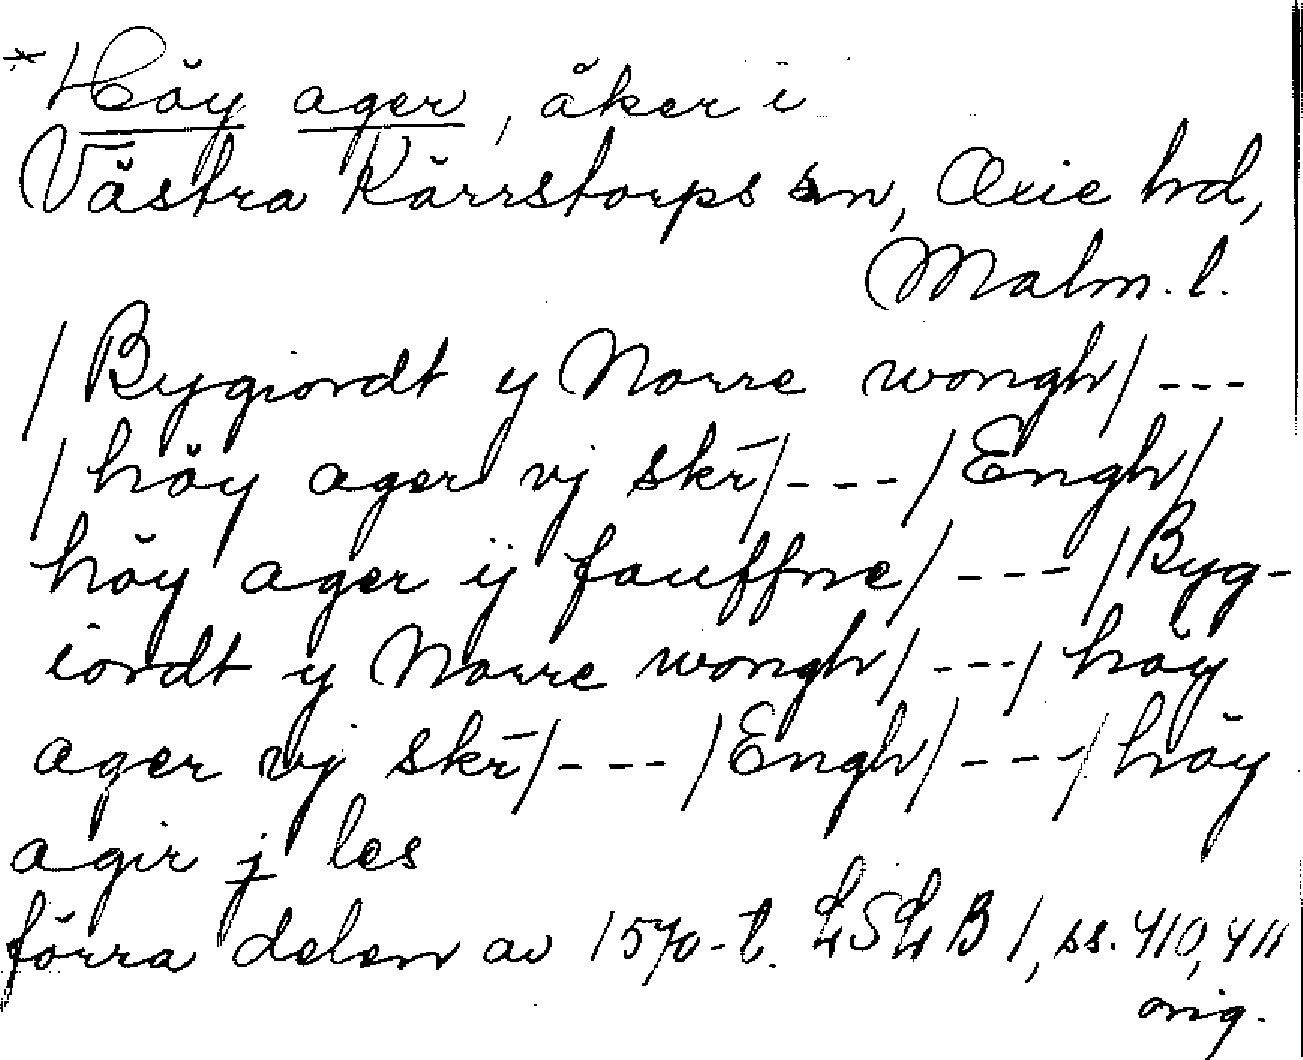 *Höy ager, åker i
Västra Kärrstorps sn, Oxie hd,
Malm. l.
/Bygiordt y Norre wongh/ ---
/höy ager vj skr̄/ --- /Engh/
höy ager ij fauffne/ --- /Byg-
iordt y Norre wongh/ ---/ höy
ager vj skr̄/ --- /Engh/ ---/ höy
agir j les
förra delen av 1570-t. LSLB 1, ss. 410, 411
orig.